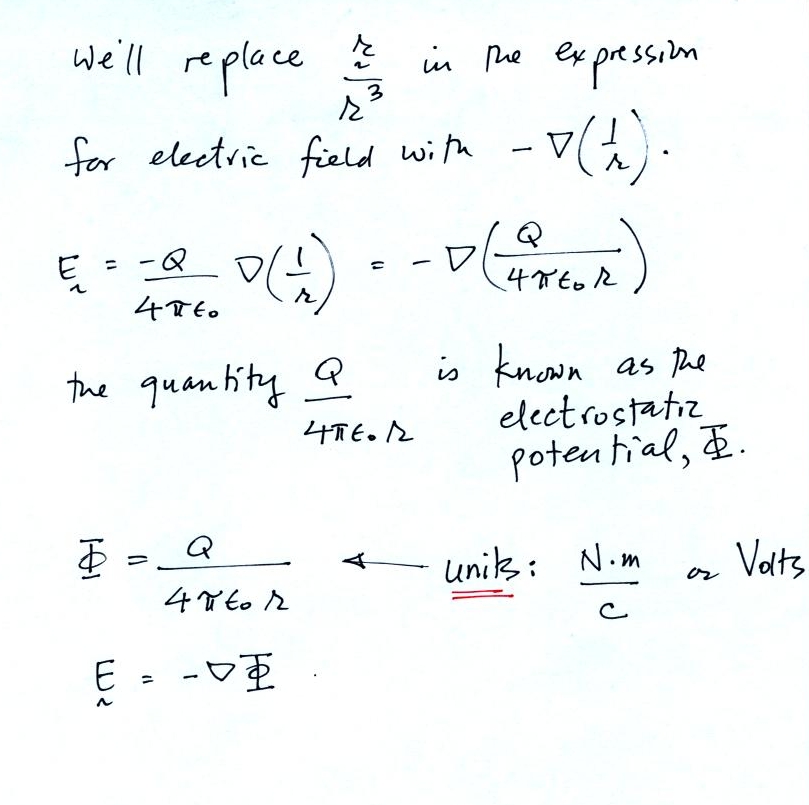 We'll replace r̰/r³ in the expression
for electric field with - ∇(1/r).
Ḛ = -Q/4πε₀ ∇(1/r) = - ∇(Q/4πε₀ r)
the quantity Q/4πε₀ r is known as the
electrostatic
potential, Φ.
Φ = Q/4πε₀ r ← units: N·m/C or Volts
Ḛ = -∇Φ.